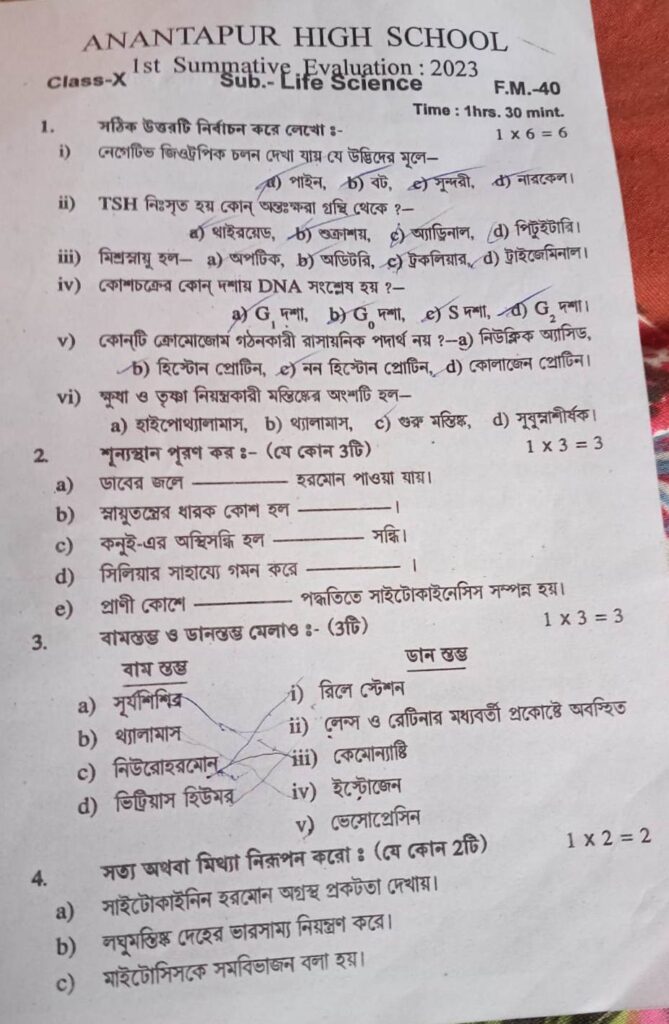 ANANTAPUR HIGH SCHOOL
1st Summative Evaluation : 2023
Class-X Sub.- Life Science F.M.-40
Time : 1hrs. 30 mint.
1. সঠিক উত্তরটি নির্বাচন করে লেখো ঃ- 1 x 6 = 6
i) নেগেটিভ জিওট্রপিক চলন দেখা যায় যে উদ্ভিদের মূলে—
a) পাইন, b) বট, c) সুন্দরী, d) নারকেল।
ii) TSH নিঃসৃত হয় কোন্ অন্তঃক্ষরা গ্রন্থি থেকে ?—
a) থাইরয়েড, b) শুক্রাশয়, c) অ্যাড্রিনাল, d) পিটুইটারি।
iii) মিশ্রস্নায়ু হল— a) অপটিক, b) অডিটরি, c) ট্রকলিয়ার, d) ট্রাইজেমিনাল।
iv) কোশচক্রের কোন্ দশায় DNA সংশ্লেষ হয় ?—
a) G1 দশা, b) G0 দশা, c) S দশা, d) G2 দশা।
v) কোন্‌টি ক্রোমোজোম গঠনকারী রাসায়নিক পদার্থ নয় ?—a) নিউক্লিক অ্যাসিড,
b) হিস্টোন প্রোটিন, c) নন হিস্টোন প্রোটিন, d) কোলাজেন প্রোটিন।
vi) ক্ষুধা ও তৃষ্ণা নিয়ন্ত্রনকারী মস্তিষ্কের অংশটি হল—
a) হাইপোথ্যালামাস, b) থ্যালামাস, c) গুরু মস্তিষ্ক, d) সুষুম্নাশীর্ষক।
2. শূন্যস্থান পূরণ কর ঃ- (যে কোন 3টি) 1 x 3 = 3
a) ডাবের জলে ———— হরমোন পাওয়া যায়।
b) স্নায়ুতন্ত্রের ধারক কোশ হল ————।
c) কনুই-এর অস্থিসন্ধি হল ———— সন্ধি।
d) সিলিয়ার সাহায্যে গমন করে ————।
e) প্রাণী কোশে ———— পদ্ধতিতে সাইটোকাইনেসিস সম্পন্ন হয়।
3. বামস্তম্ভ ও ডানস্তম্ভ মেলাও ঃ- (3টি) 1 x 3 = 3
বাম স্তম্ভ ডান স্তম্ভ
a) সূর্যশিশির i) রিলে স্টেশন
b) থ্যালামাস ii) লেন্স ও রেটিনার মধ্যবর্তী প্রকোষ্ঠে অবস্থিত
c) নিউরোহরমোন iii) কেমোন্যাস্টি
d) ভিট্রিয়াস হিউমর iv) ইস্ট্রোজেন
v) ভেসোপ্রেসিন
4. সত্য অথবা মিথ্যা নিরূপন করো ঃ (যে কোন 2টি) 1 x 2 = 2
a) সাইটোকাইনিন হরমোন অগ্রস্থ প্রকটতা দেখায়।
b) লঘুমস্তিষ্ক দেহের ভারসাম্য নিয়ন্ত্রণ করে।
c) মাইটোসিসকে সমবিভাজন বলা হয়।